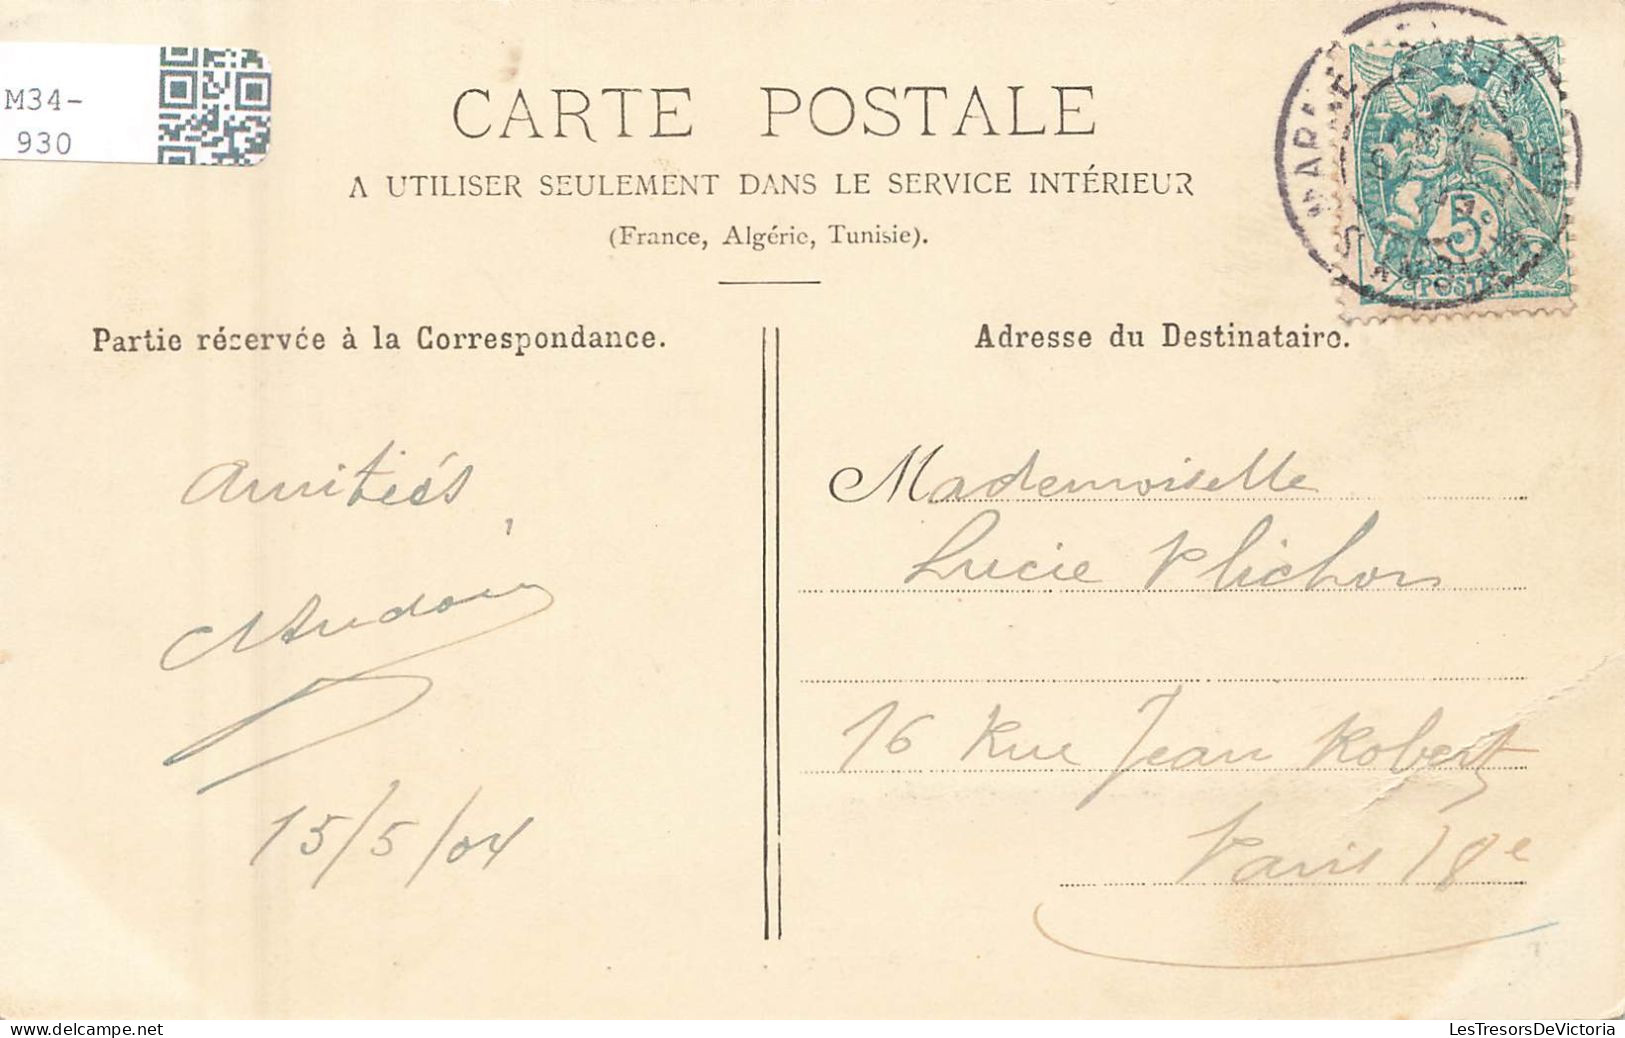 M34-
930
CARTE POSTALE
A UTILISER SEULEMENT DANS LE SERVICE INTÉRIEUR
(France, Algérie, Tunisie).
Partie réservée à la Correspondance.
Amitiés
15/5/04
Adresse du Destinataire.
Mademoiselle
Lucie Plichon
16 Rue Jean Robert
Paris 18e
5c
POSTES
LesTresorsDeVictoria